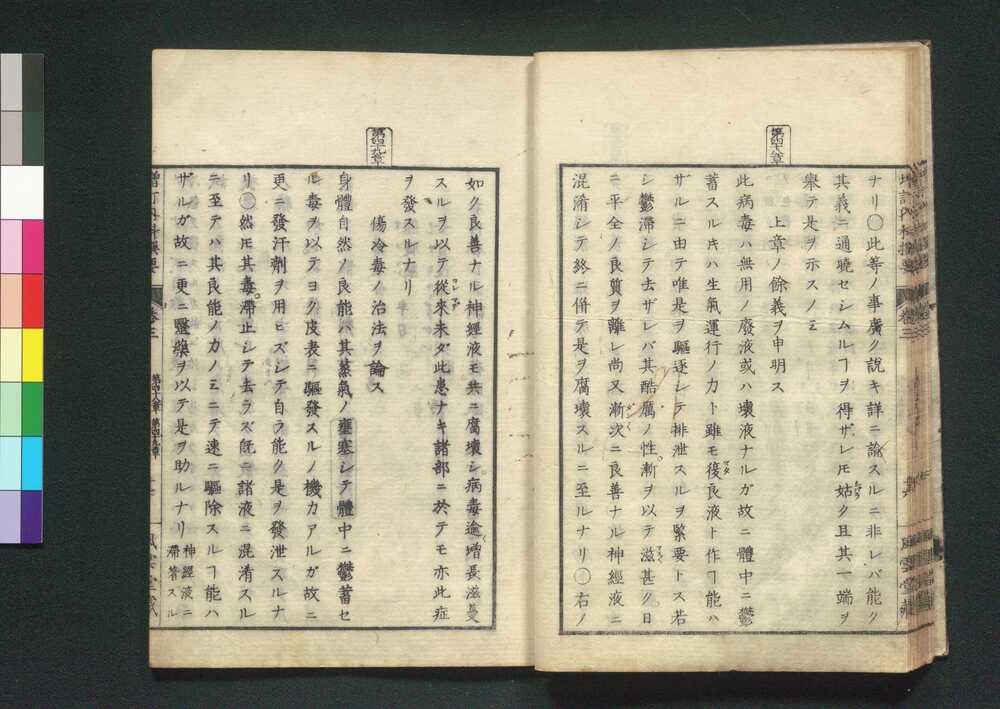 第四十八章
ナリ〇此等ノ事廣ク說キ詳ニ論スルニ非レバ能ク
其義ニ通曉セシムルヿヲ得ザレ𪜈姑ク且其一端ヲ
舉テ是ヲ示スノミ
上章ノ餘義ヲ申明ス
此病毒ハ無用ノ廢液或ハ壞液ナルガ故ニ體中ニ鬱
蓄スル𪜈ハ生氣運行ノ力ト雖モ復良液ト作ヿ能ハ
ザルニ由テ唯是ヲ驅逐シテ排泄スルヲ緊要トス若
シ鬱滯シテ去ザレバ其酷厲ノ性漸ヲ以テ滋甚ク日
ニ平全ノ良質ヲ離レ尚又漸次ニ良善ナル神經液ニ
混淆シテ終ニ偕テ是ヲ腐壞スルニ至ルナリ〇右ノ
第四十九章
如ク良善ナル神經液モ共ニ腐壞シ病毒逾増長滋蔓
スルヲ以テ從來未ダ此患ナキ諸部ニ於テモ亦此症
ヲ發スルナリ
傷冷毒ノ治法ヲ論ス
身體自然ノ良能ハ其蒸氣ノ壅塞シテ體中ニ鬱蓄セ
ル毒ヲ以テヨク皮表ニ驅發スルノ機力アルガ故ニ
更ニ發汗劑ヲ用ヒズシテ自ラ能ク是ヲ發泄スルナ
リ〇然𪜈其毒滯止シテ去ラズ既ニ諸液ニ混淆スル
ニ至テハ其良能ノ力ノミニテ速ニ驅除スルヿ能ハ
ザルガ故ニ更ニ醫藥ヲ以テ是ヲ助ルナリ神經液ニ滯著スル
卷三
第四十八章 第四十九章